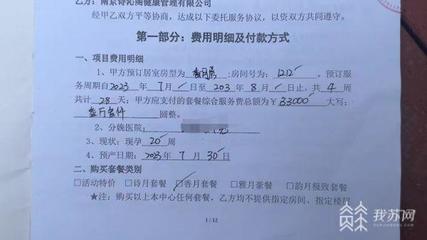 乙方：南京诗沁阁健康管理有限公司
经甲乙双方平等协商，达成以下委托服务协议，以资双方共同遵守。
第一部分：费用明细及付款方式
一、项目费用明细
1、甲方预订居室房型为 香月房 ；房间号为：1212 。预订服
务周期自2023 年 7 月 / 日至 203 年 8 月 / 日止，共 4 周
共计 28 天；甲方应支付的套餐综合服务费总额为￥ 33000 大写：
圆整。
2、分娩医院：
3、现状：现孕 20 周
4、预产日期：2023 年 7 月 30 日
二、购买套餐类别
□活动特价 □诗月套餐 ☑香月套餐 □雅月豪餐 □韵月极致套餐
★注：购买以上本中心任何套餐，乙方均不提供指定房间、指定楼层
1 / 12
我苏网